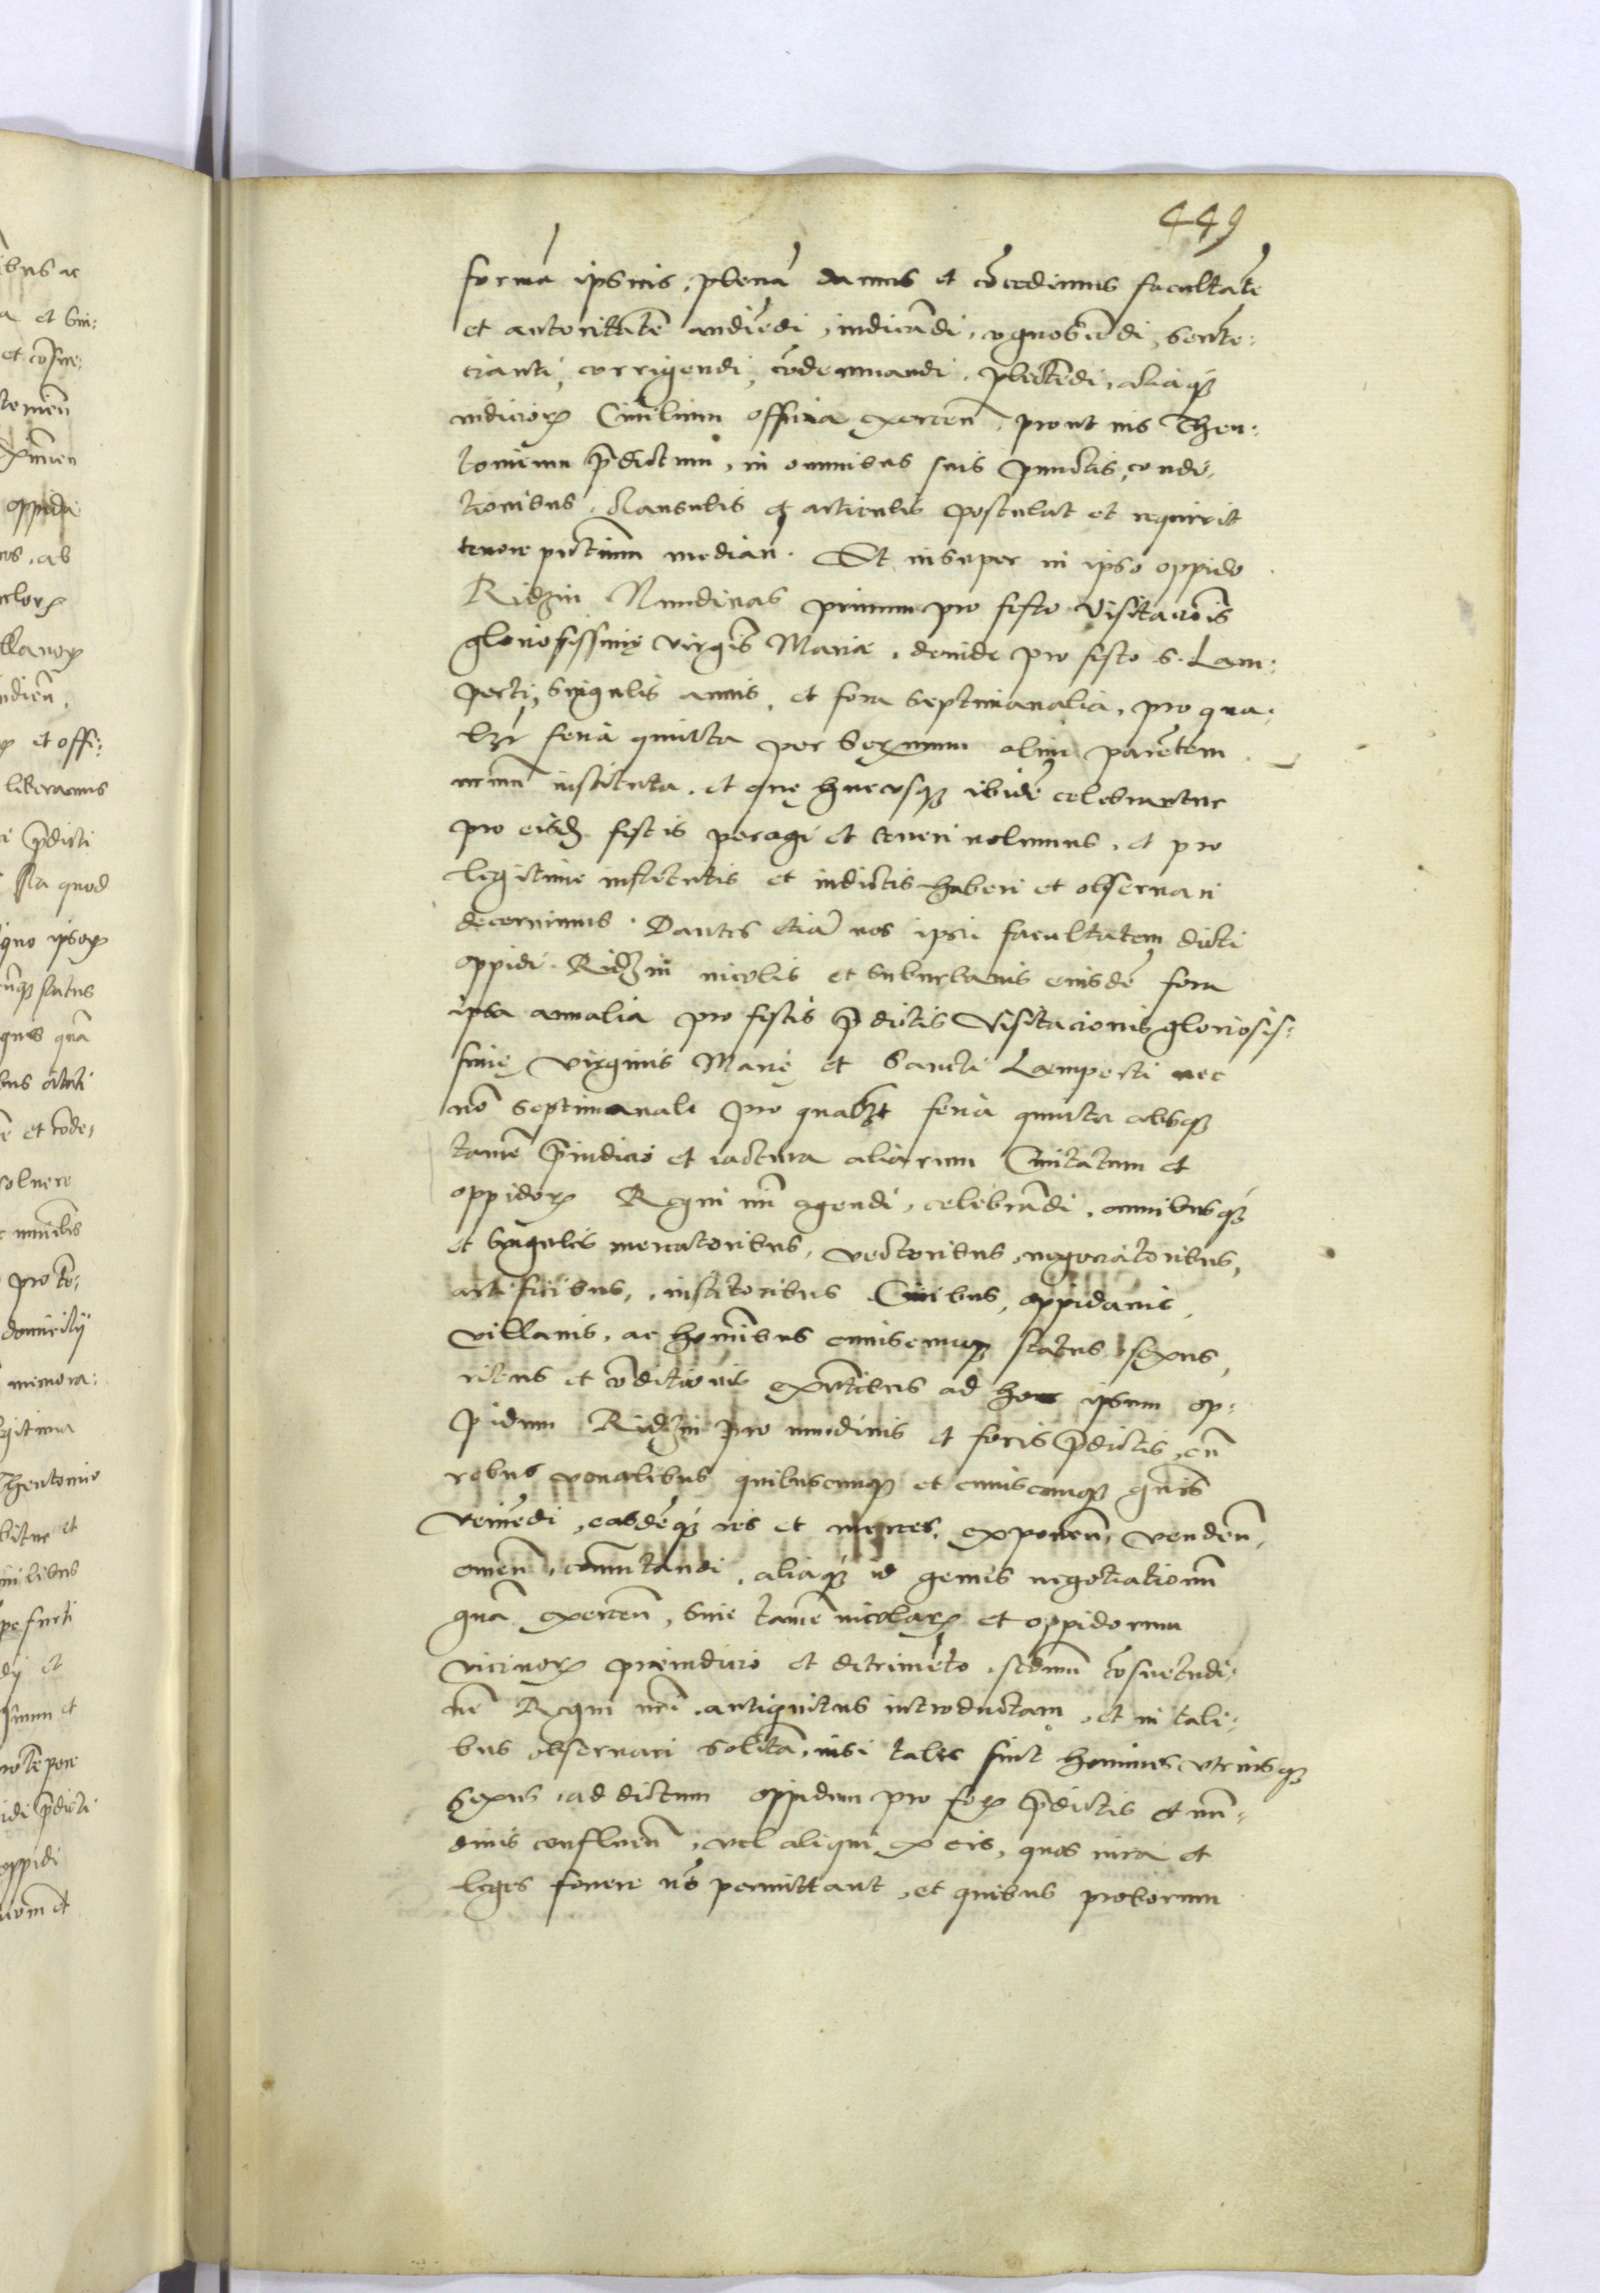 449
formā ipsius, plenā damus et cōcedimus facultatē
et autoritatē audiēdi, iudicādi, cognoscēdi, sentē:
cianti, corrigendi, cōdemnandi, plectēdi, aliaqꝫ
iudicioꝝ Civilium officia exercēn, prout ius Theu:
tonicum p̄dictum, in omnibus suis punctis, condi:
tionibus, clausulis et articulis postulat et requirit
tenore pn̄tium median̄. Et insuper in ipso oppido
Ridzin Nundinas primum pro festo Visitatiōis
gloriosissimę virgīs Mariæ, deinde pro festo S. Lam:
perti, singulis annis, et fora septimanalia, pro qua:
lꝫt feria quinta per Serꝫmum olim parētem
nrūm instituta, et quę hucusqꝫ ibidē celebrantur
pro eisdꝫ festis peragi et teneri volumus, et pro
legitime institutis et indictis haberi et observari
decernimus. Dantes etiā nos ipsi facultatem dicti
oppidi Ridzin incolis et suburbanis eiusdē fora
ipsa annalia pro festis p̄dictis Visitacionis gloriosis:
simę virginis Marię et Sancti Lamperti nec
nō septimanale pro qualꝫt feria quinta absqꝫ
tamē p̄iudicio et iactura aliarum Civitatum et
oppidoꝝ Regni nrī agendi, celebrādi, omnibusqꝫ
et singulis mercatoribus, vectoribus, negociatoribus,
artificibus, institoribus Civibus, oppidanis,
villanis, ac hominibus cuiuscunqꝫ status, sexus,
ritus et cōditionis exn̄tibus ad hoc ipsum op:
pidum Ridzin pro nundinis et foris p̄dictis, cū
rebus venalibus quibuscunqꝫ et cuiuscunqꝫ gn̄is
veniēdi, easdēqꝫ res et merces, exponēn, vendēn,
emēn, cōmutandi, aliaqꝫ id genus negotiationū
quā exercēn, sine tamē incolarꝝ et oppidorum
vicinorꝝ preiudicio et detrimēto, scdm̄ cōsuetudi:
nē Regni nrī antiquitus introductam, et in tali:
bus observari solitā, nisi tales sint homines utriusqꝫ
sexus, ad dictum oppidum pro foꝝ p̄dictis et nū:
dinis confluēn, vel aliqui ex eis, quos iura et
leges fovere nō permittant, et quibus proborum